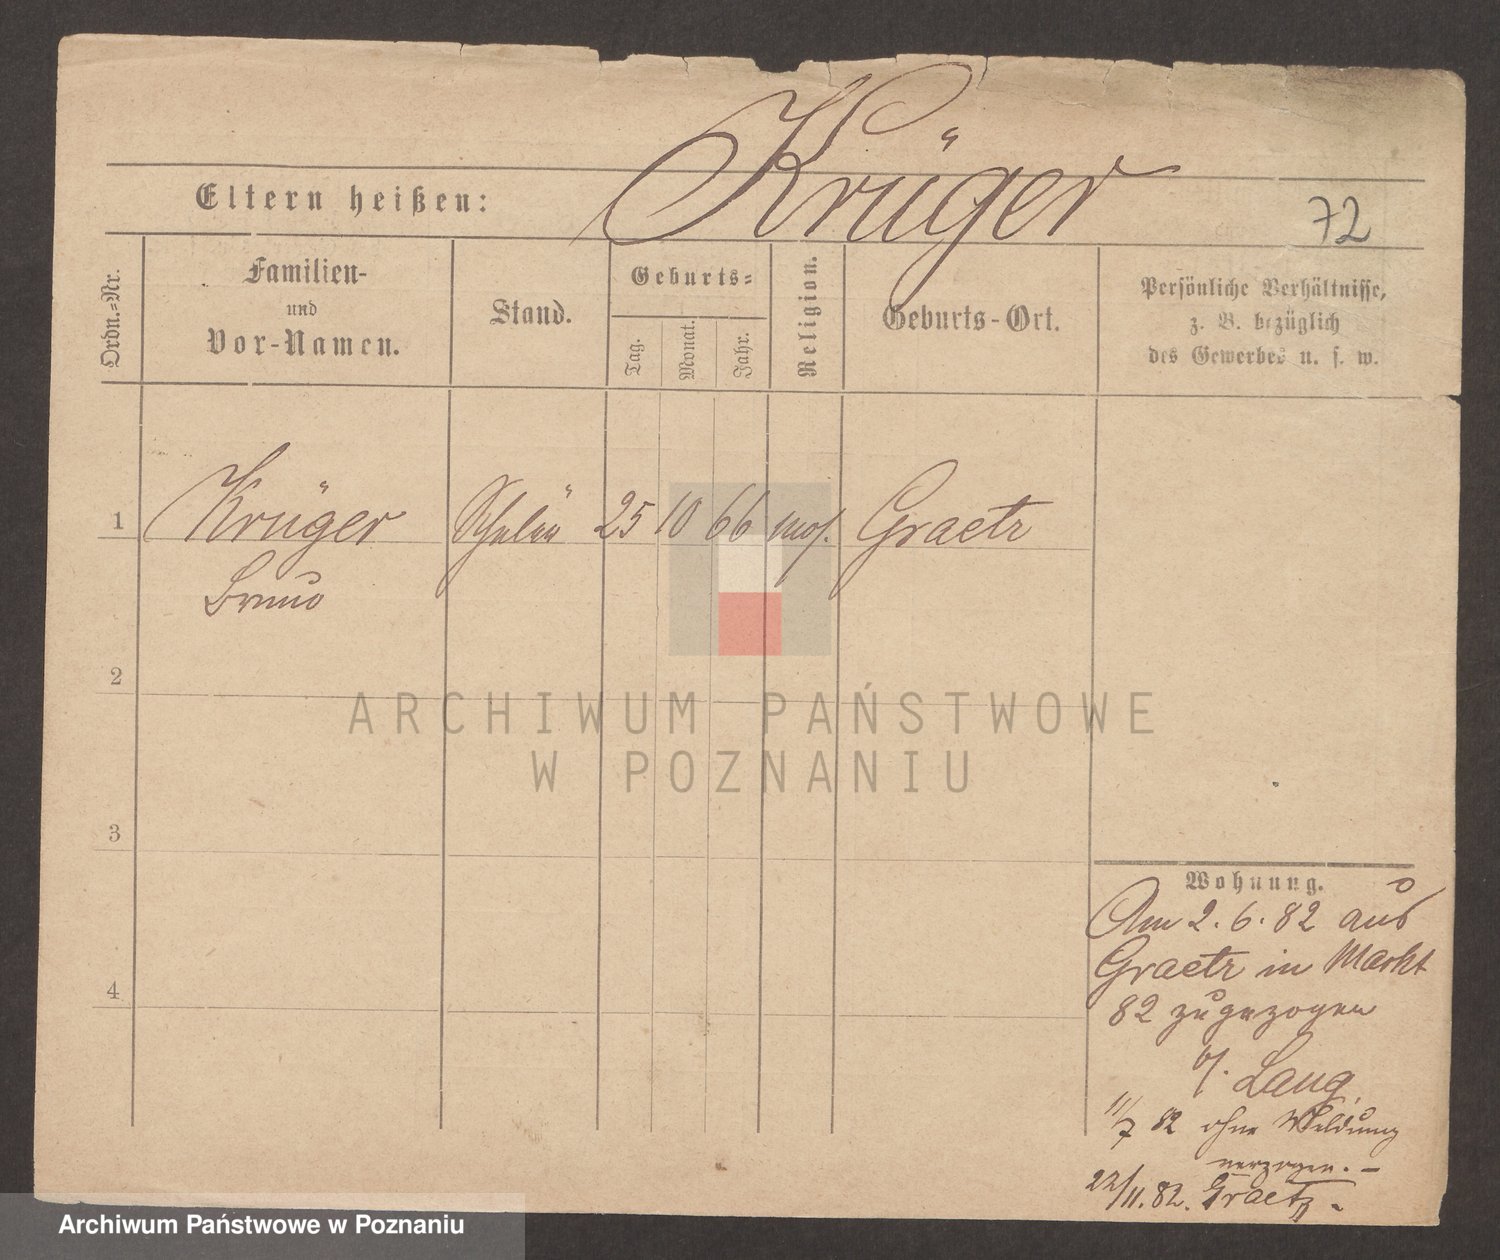 Krüger
Eltern heißen:
72
Ordn.-Nr.
Familien-
und
Vor-Namen.
Stand.
Geburts-
Tag.
Monat.
Jahr.
Religion.
Geburts-Ort.
Persönliche Verhältnisse,
z. B. bezüglich
des Gewerbes u. s. w.
1
Krüger
25
10
66
mos.
Graetz
Bruno
2
ARCHIWUM PAŃSTWOWE
W POZNANIU
3
Wohnung.
Am 2. 6. 82 aus
Graetz in Markt
82 zugezogen
b/. Lang.
11/7 82 ohne Meldung
verzogen. —
22/11. 82. Graetz.
4
Archiwum Państwowe w Poznaniu